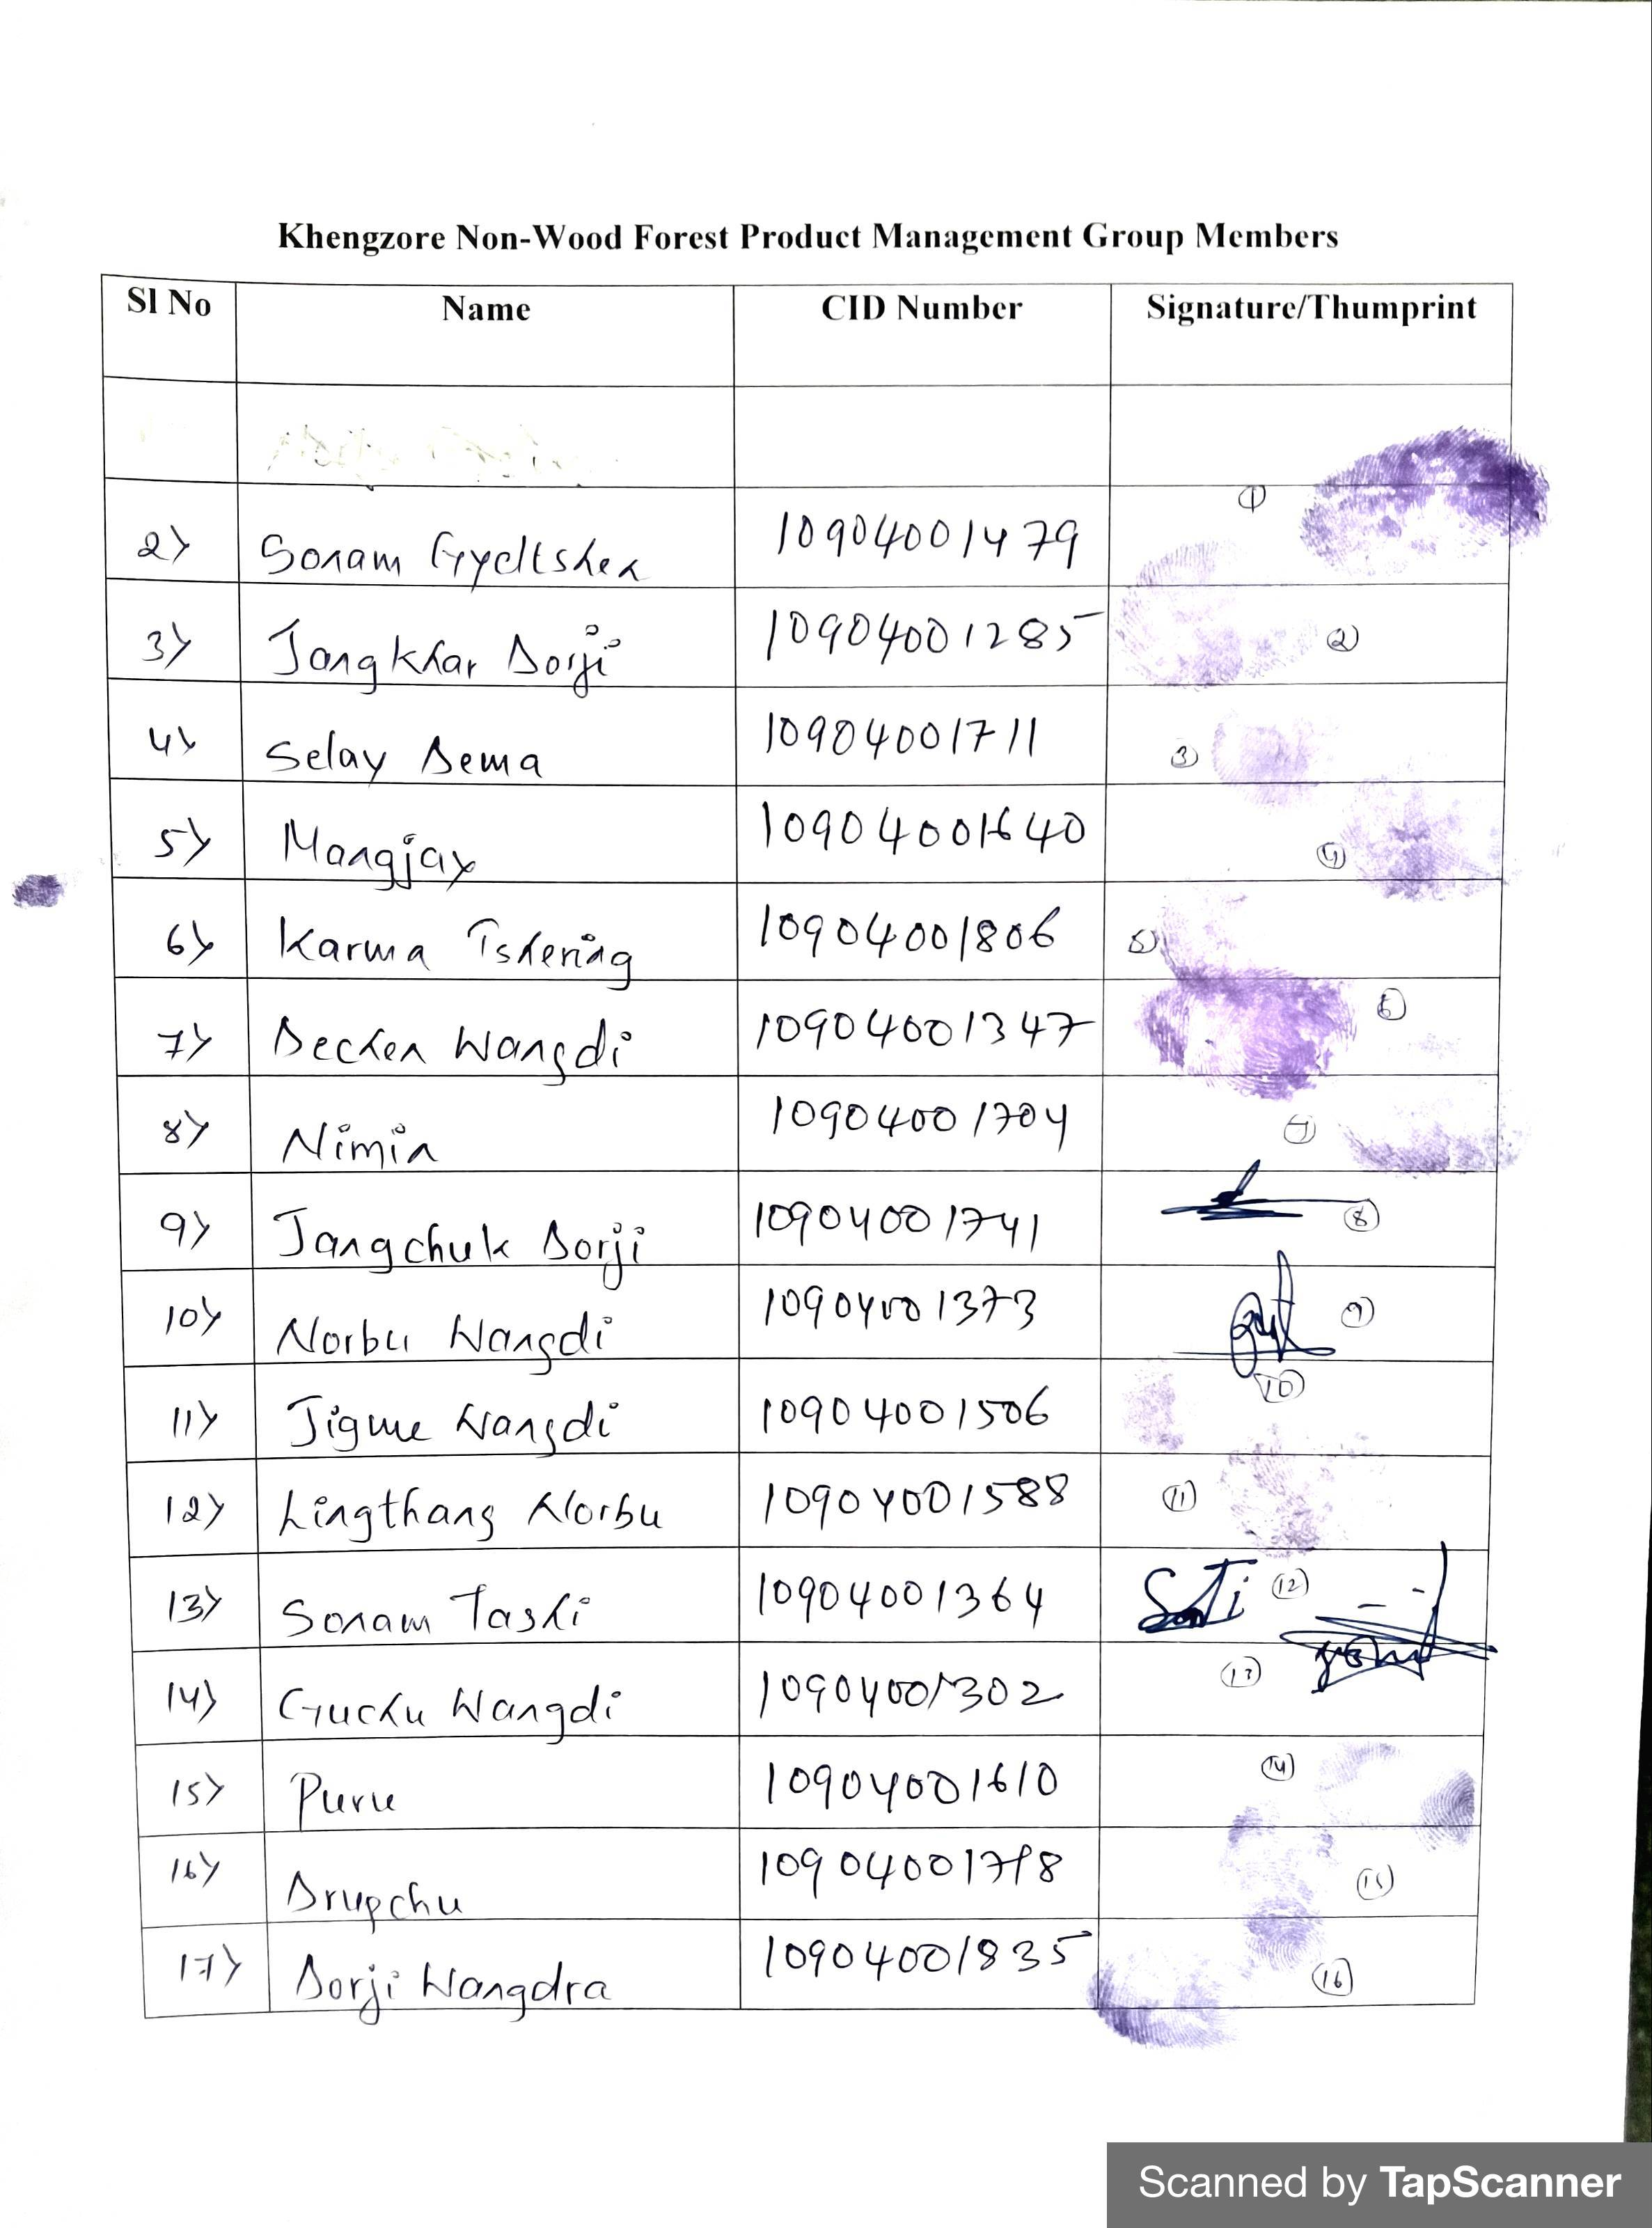 Khengzore Non-Wood Forest Product Management Group Members
Sl No Name CID Number Signature/Thumprint
①
2) Sonam Gyeltshen 10904001479
3) Jangkhar Dorji 10904001285 ②
4) Selay Dema 10904001711 ③
5) Mangjay 10904001640 ④
6) Karma Tshering 10904001806 ⑤
7) Dechen Wangdi 10904001347 ⑥
8) Nimin 10904001704 ⑦
9) Jangchuk Dorji 10904001741 ⑧
10) Norbu Wangdi 10904001373 ⑨
11) Jigme Wangdi 10904001506 ⑩
12) Lingthang Norbu 10904001588 ⑪
13) Sonam Tashi 10904001364 ⑫
14) Guchu Wangdi 10904001302 ⑬
15) Puru 10904001610 ⑭
16) Drupchu ⑮
17) Dorji Wangdra 10904001835 ⑯
Scanned by TapScanner